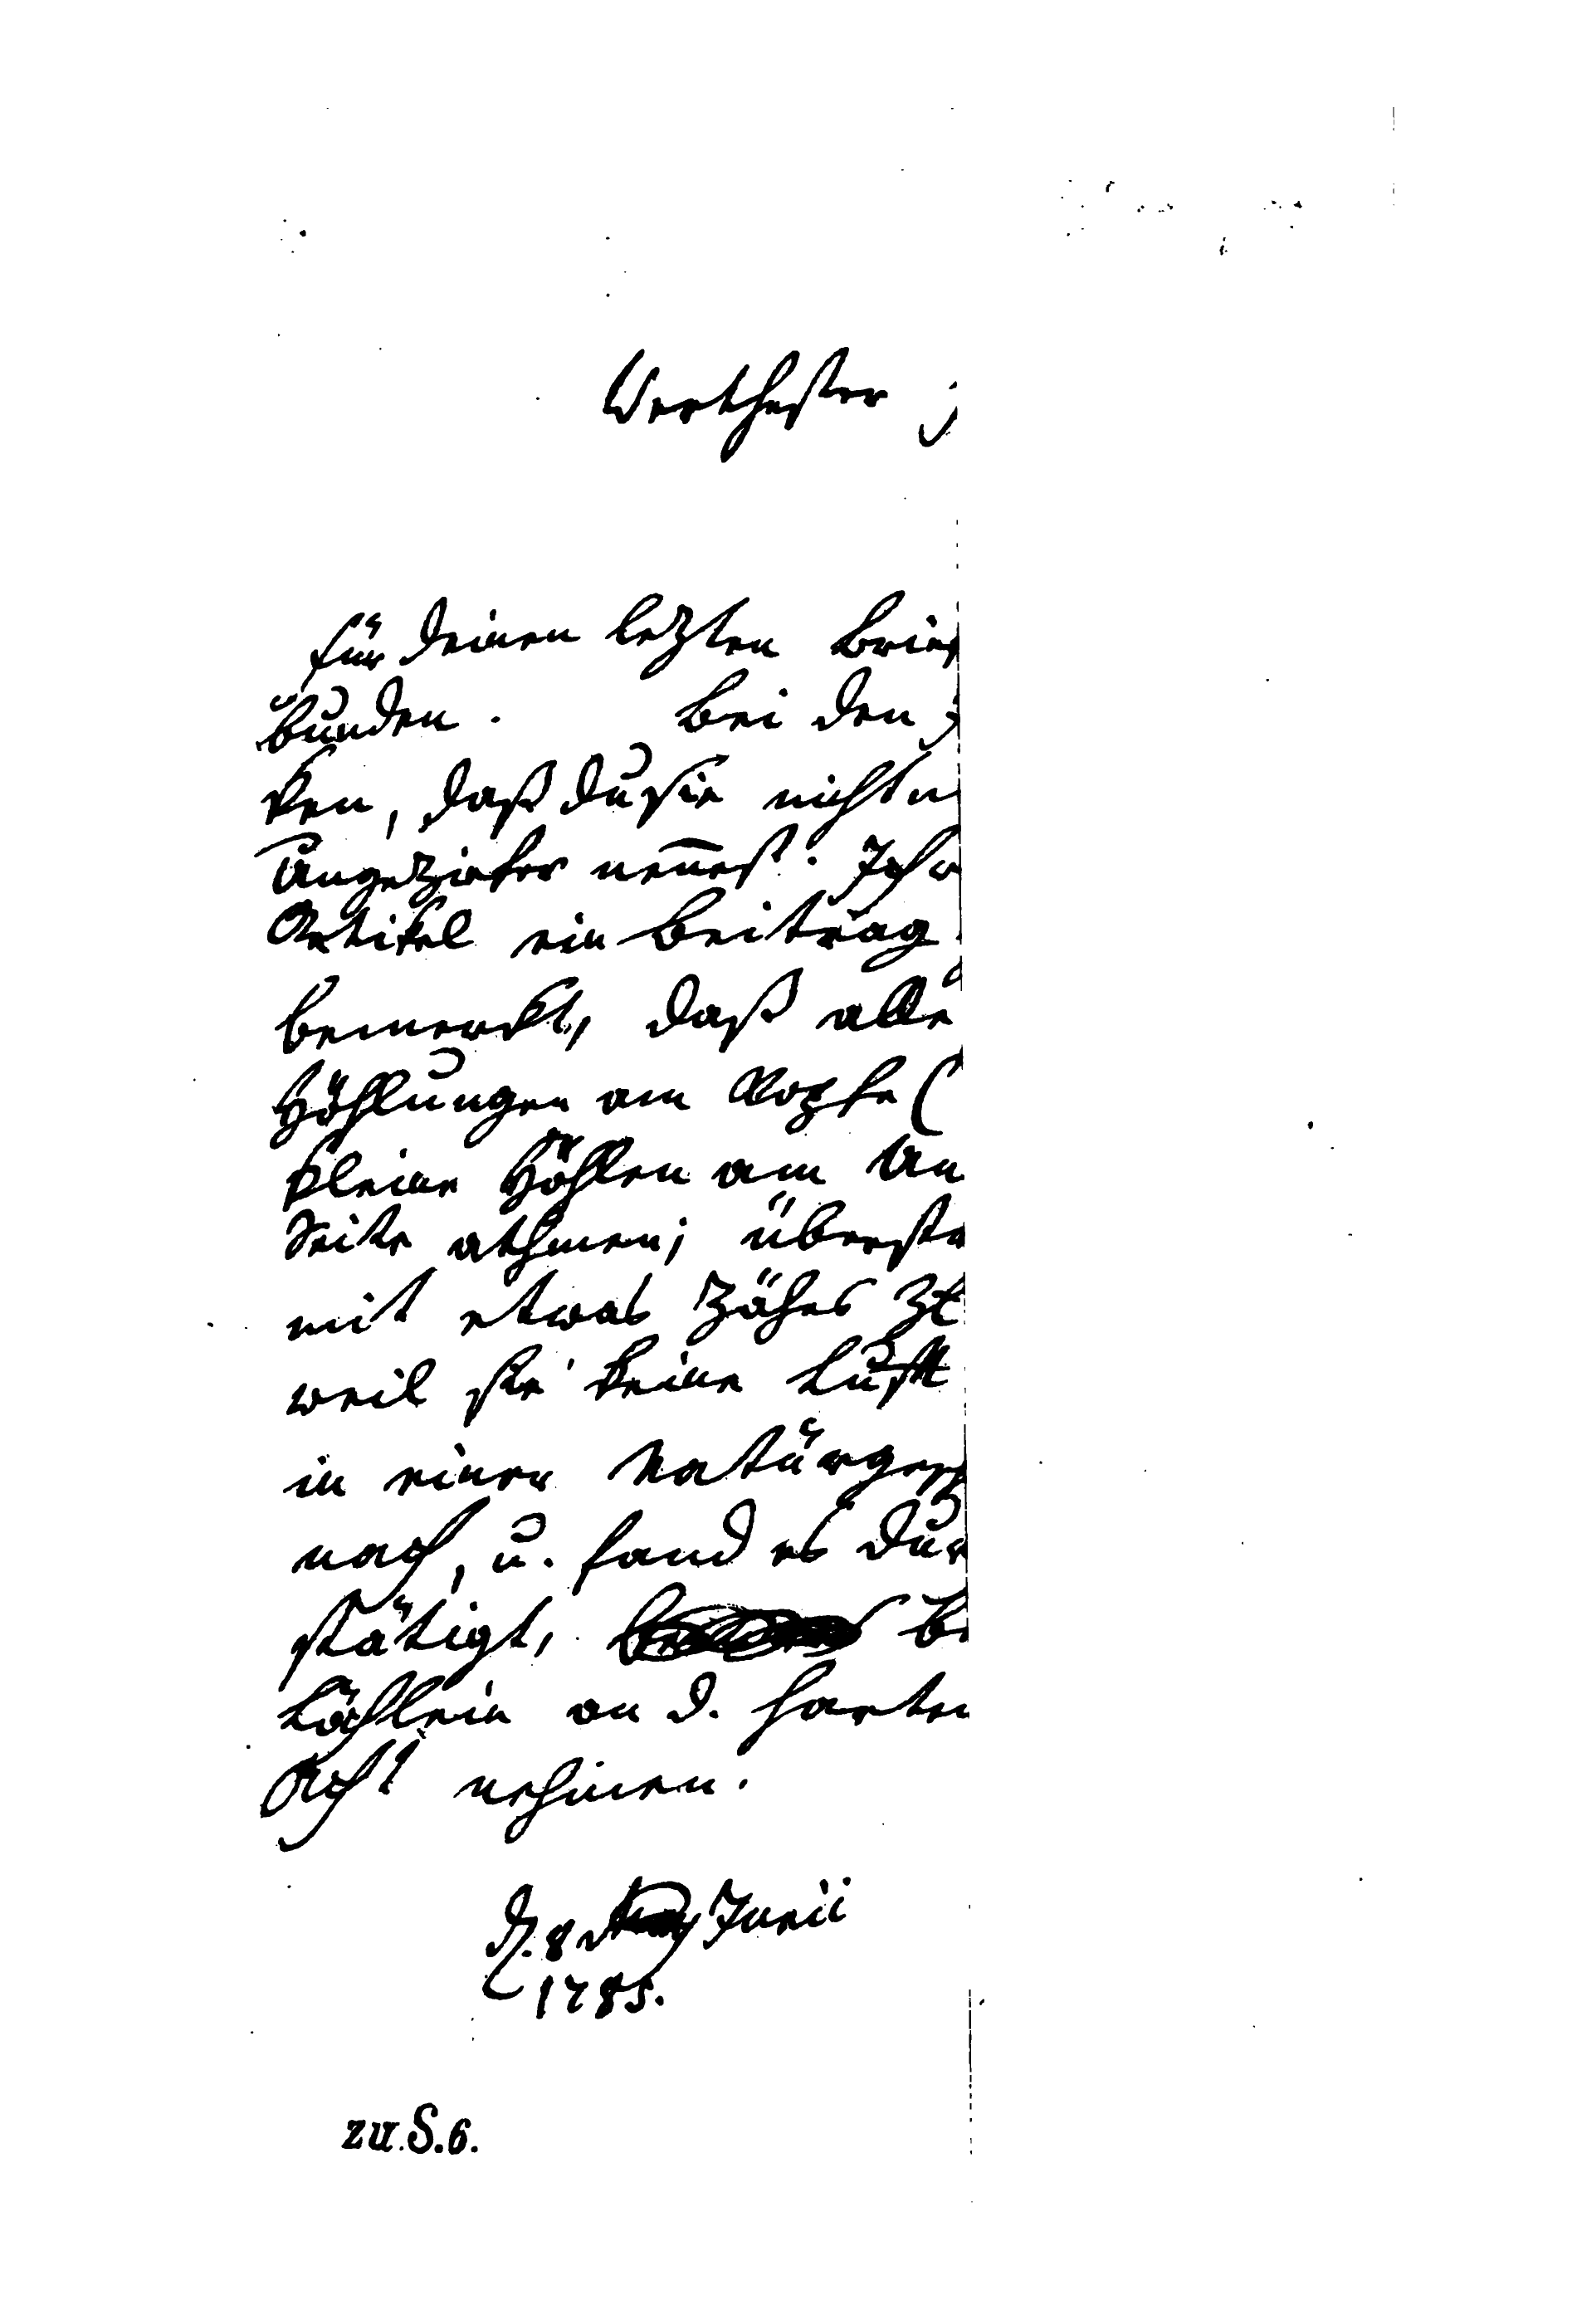 Werthester
für deinen lezten Brief
bunden. Bei den
ken, daß du sie nicht
Ungeziefer nennest. Ich
Artikel ein Beitrag
bemerkt, daß alle
Höhlungen am Kopfe (
kleine Höhlen am Un
Seite athmen; überst
mit etwas Zähes
weil sie keine Luft
in einer Naturges
nach, u. fand es dur
stätigt, be
Löchlein an d. harten
Acht nehmen.
d. 8 Junii
1785.
zu S. 6.